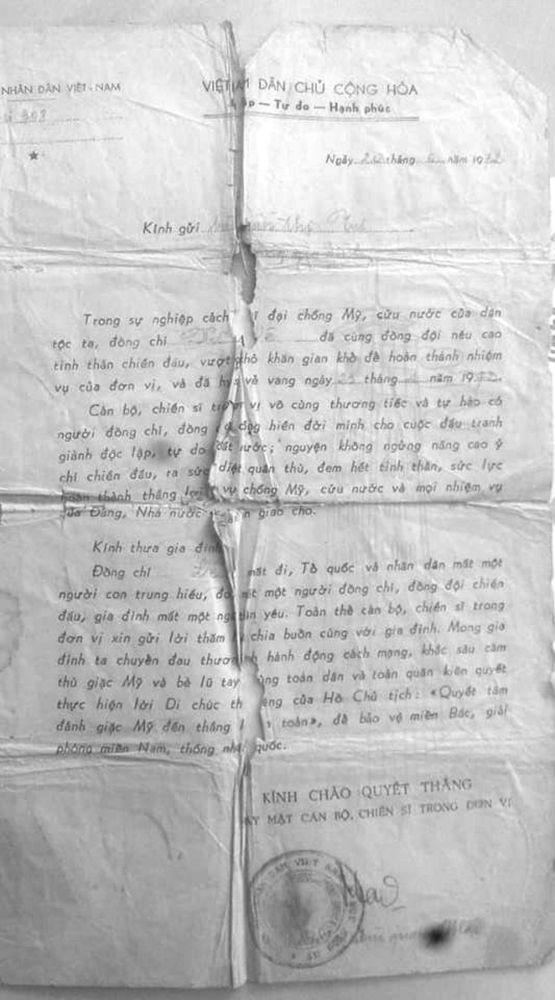 NHÂN DÂN VIỆT-NAM
VIỆT DÂN CHỦ CỘNG HÒA
308
— Tự do — Hạnh phúc
★
Ngày 20 tháng 6 năm 1972
Kính gửi
Trong sự nghiệp cách đại chống Mỹ, cứu nước của dân
tộc ta, đồng chí đã cùng đồng đội nêu cao
tinh thần chiến đấu, vượt khó khăn gian khổ để hoàn thành nhiệm
vụ của đơn vị, và đã vẻ vang ngày tháng năm 1972.
Cán bộ, chiến sĩ vị vô cùng thương tiếc và tự hào có
người đồng chí, đồng hiến đời mình cho cuộc đấu tranh
giành độc lập, tự do đất nước; nguyện không ngừng nâng cao ý
chí chiến đấu, ra sức diệt quân thù, đem hết tinh thần, sức lực
hoàn thành thắng vụ chống Mỹ, cứu nước và mọi nhiệm vụ
của Đảng, Nhà nước giao cho.
Kính thưa gia đình
Đồng chí mất đi, Tổ quốc và nhân dân mất một
người con trung hiếu, một người đồng chí, đồng đội chiến
đấu, gia đình mất một yêu. Toàn thể cán bộ, chiến sĩ trong
đơn vị xin gửi lời thăm chia buồn cùng với gia đình. Mong gia
đình ta chuyển đau thương hành động cách mạng, khắc sâu căm
thù giặc Mỹ và bè lũ tay toàn dân và toàn quân kiên quyết
thực hiện lời Di chúc của Hồ Chủ tịch: «Quyết tâm
đánh giặc Mỹ đến thắng toàn», để bảo vệ miền Bắc, giải
phóng miền Nam, thống nhất quốc.
KÍNH CHÀO QUYẾT THẮNG
MẶT CÁN BỘ, CHIẾN SĨ TRONG ĐƠN VỊ